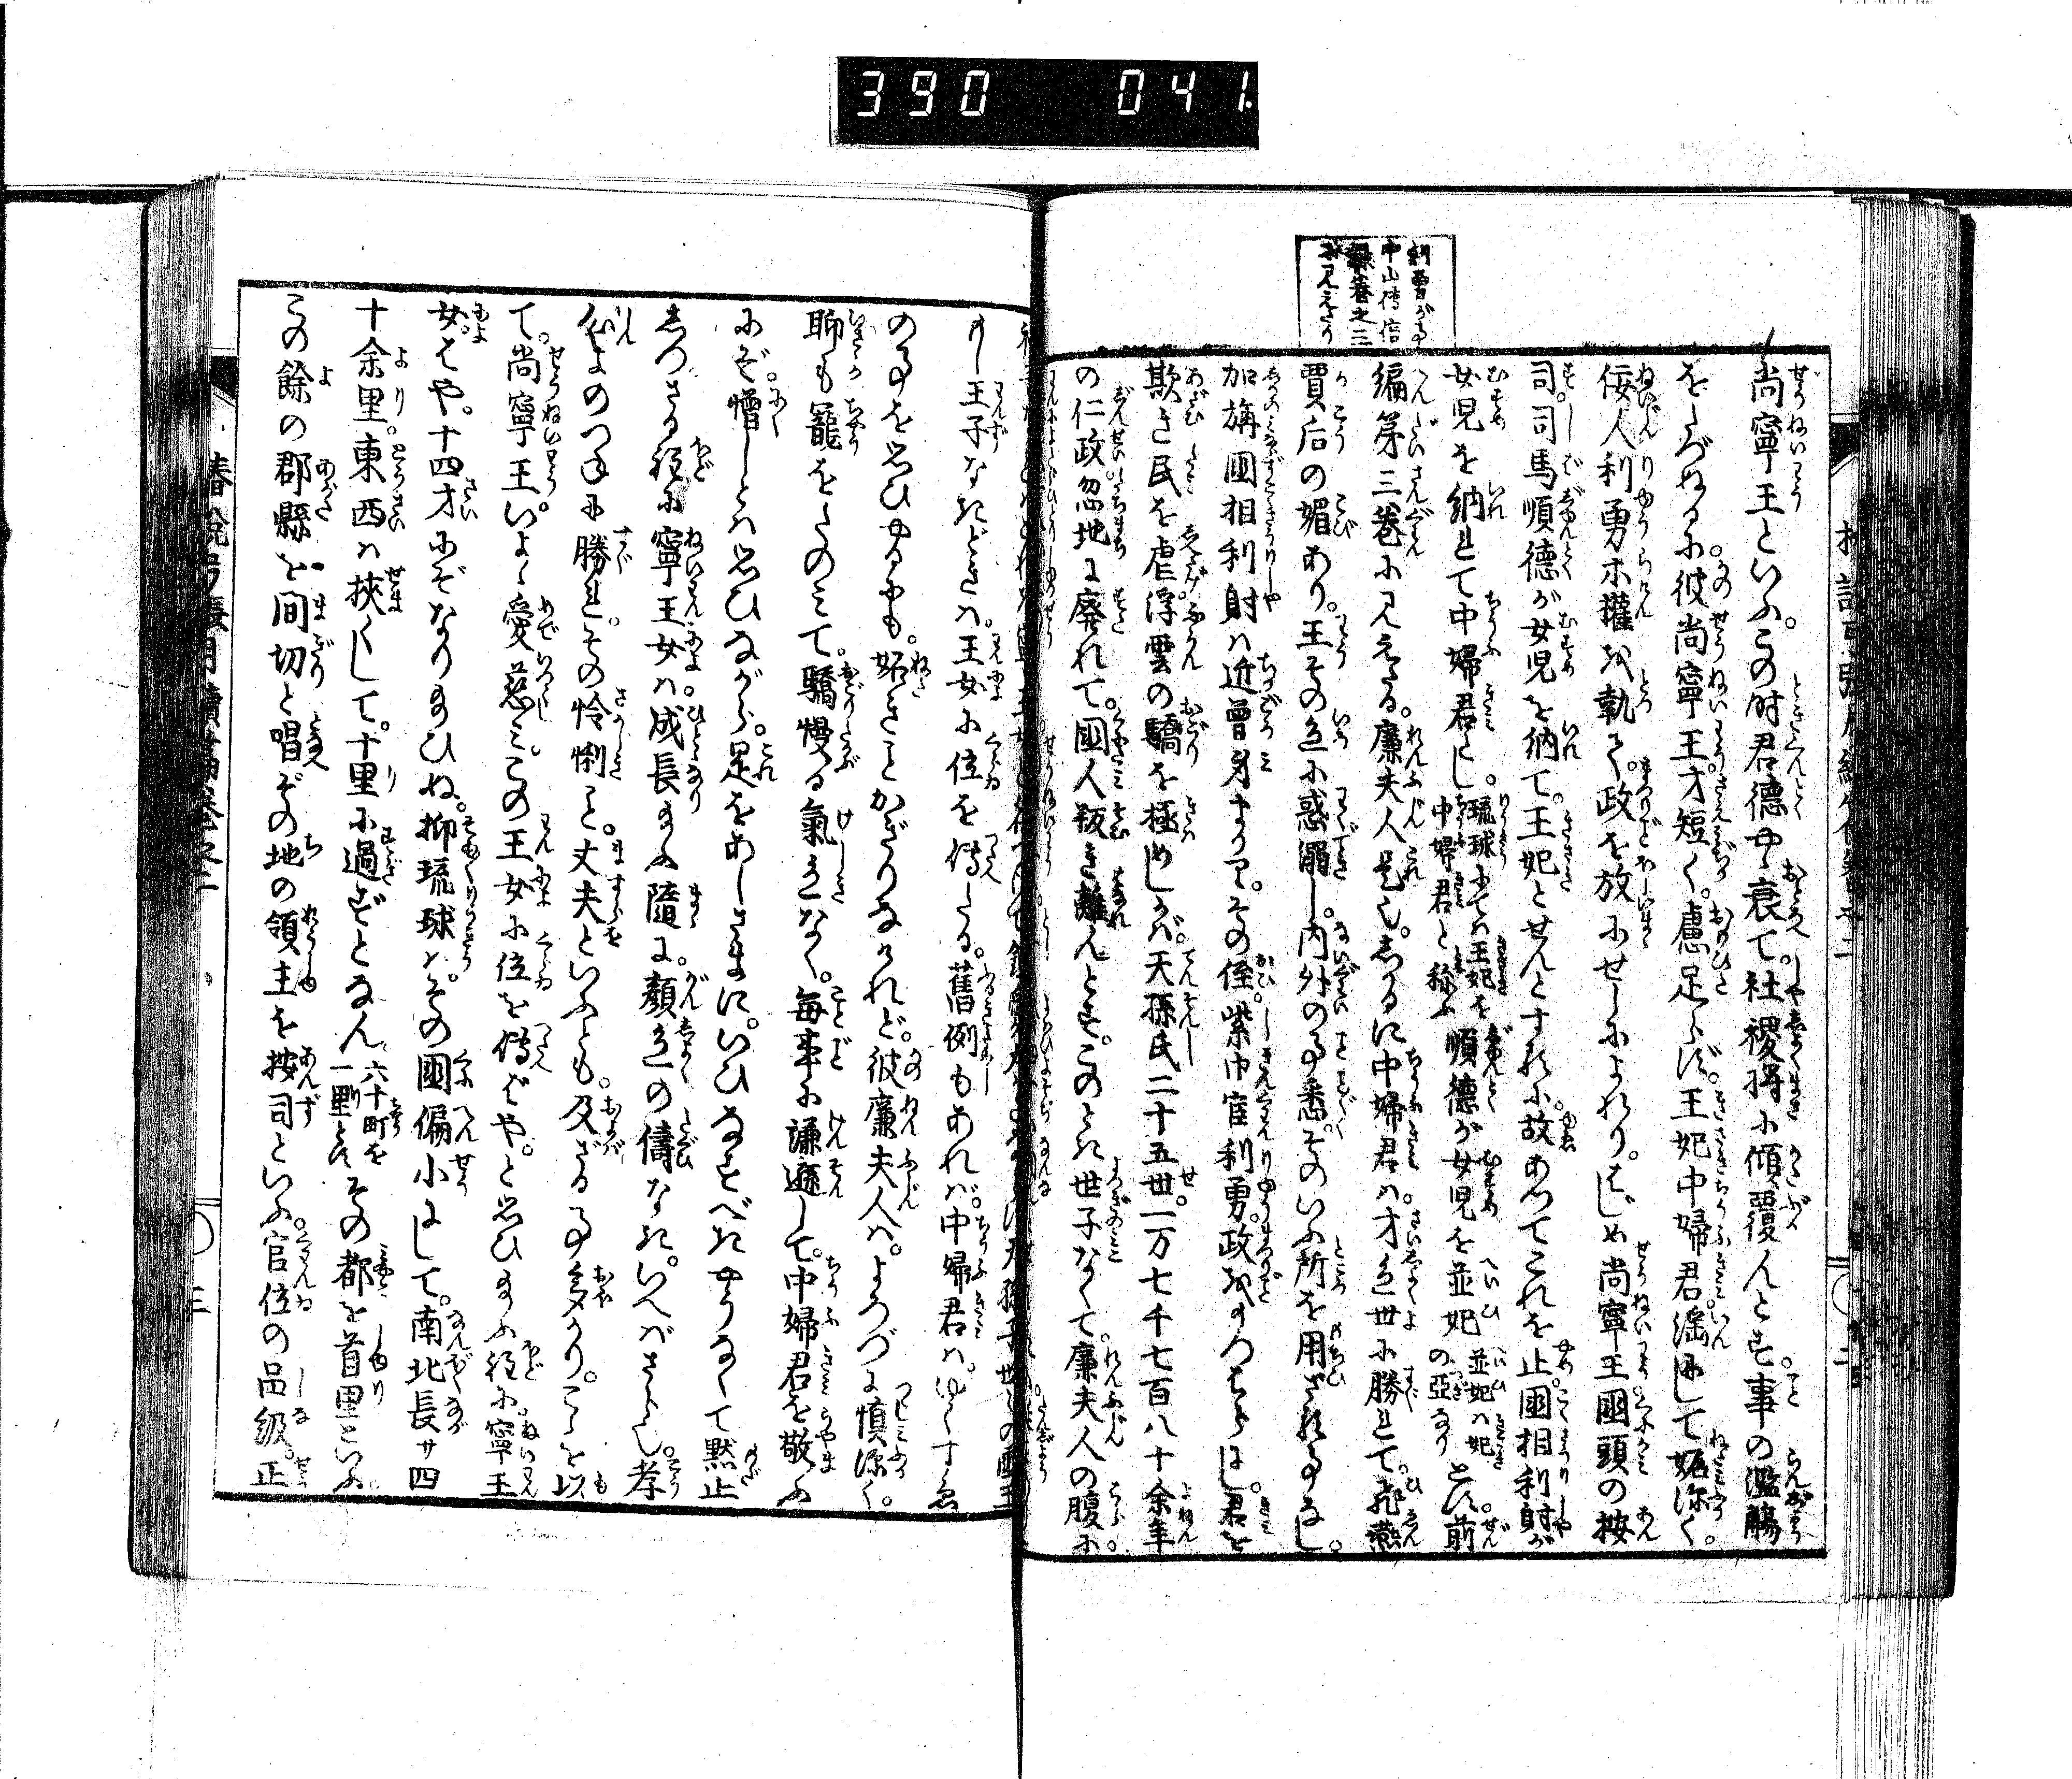 390 041.
利勇が事
中山傳信
録巻之三
に見えたり
尚寧王といふ。この時君徳や衰て。社稷将に傾覆んとす。事の濫觴
をたづぬるに。彼尚寧王。才短く。慮足らず。王妃中婦君滛にして妬深く。
佞人利勇ホ權を執て。政を放にせしによれり。はじめ尚寧王。國頭の按
司。司馬順德が女児を納て。王妃とせんとすれに。故あつてこれを止。國相利射が
女児を納れて中婦君とし。琉球にては王妃を中婦君と称ふ順德が女児を並妃並妃ハ妃の亞なりとす。前
編第三巻に見えたる。廉夫人是也。しかるに中婦君ハ。才色世に勝れて。飛燕
賈后の媚あり。王その色に惑溺し。内外の事悉。そのいふ所を用ざれる事なし。
加旃國相利射ハ近曾身まかりて。その侄。紫巾官利勇。政を
欺き民を虐。浮雲の驕を極めしかバ。天孫氏二十五世。一万七千七百八十余年
の仁政忽地に廃れて。國人叛き離んとす。このとき世子なくて。廉夫人の腹に
のし王子なきときハ。王女に位を傳たる。舊例もあれバ。中婦君ハ。ゆくすゑ
の事を思ひやるにも。妬きことかぎりなけれど。彼廉夫人ハ。よろづに慎深く。
聊も寵をたのみて。驕慢る氣色なく。毎事に謙遜して。中婦君を敬ふ
にぞ。憎しとハ思ひながら。是をあしさまに。いひなすべきやうなくて黙止
しつ。さる程に寧王女ハ。成長まふ隨に。顔色の儔なき。いへばさら也。孝
心よのつねに勝れ。その怜悧こと。丈夫といふとも。及ざる事多かり。こゝを以
て。尚寧王。いよゝ愛慈み。この王女に位を傳ばや。と思ひまふ程に。寧王
女。はや。十四才にぞなりまひぬ。抑琉球ハ。その國偏小にして。南北長サ四
十余里。東西ハ挾くして。十里に過ずとなん。六十町を一里とすその都を首里といふ
この餘の郡縣を間切と唱。その地の領主を按司といふ。官位の品級。正
三